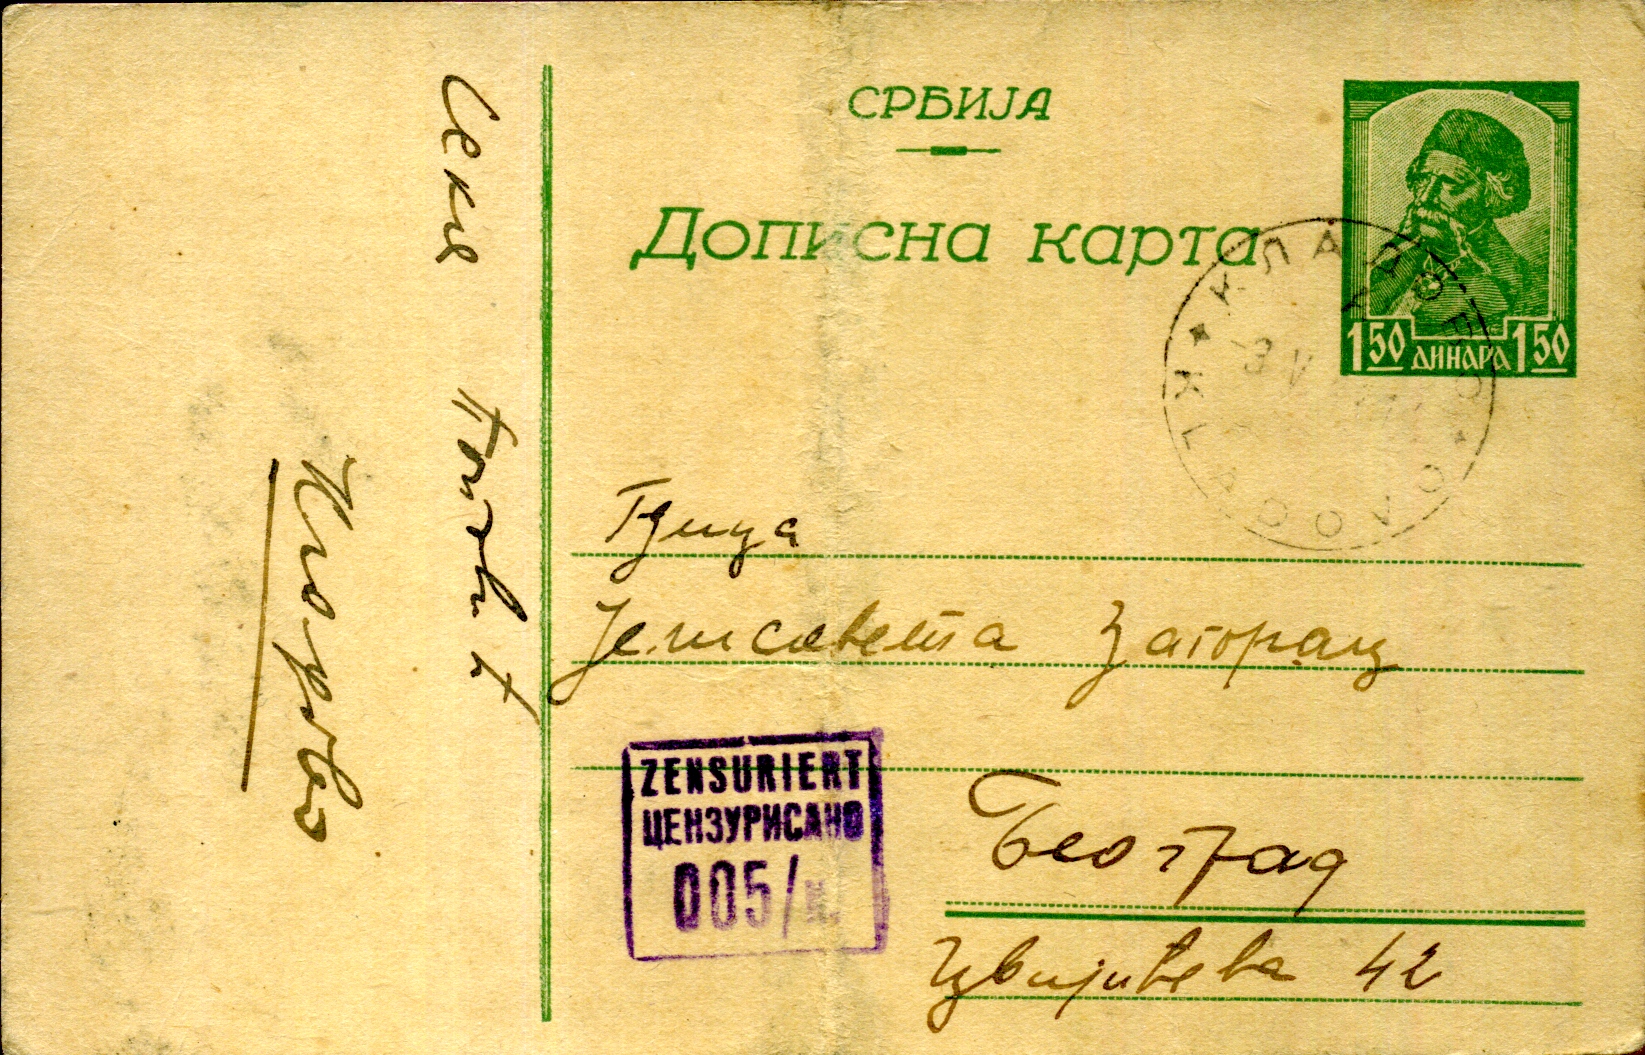 СРБИЈА
Дописна карта
1.50 ДИНАРА 1.50
КЛАДОВО
KLADOVO
Гђица
Јелисавета Загорац
Београд
Цвијићева 42
ZENSURIERT
ЦЕНЗУРИСАНО
005/
Сека